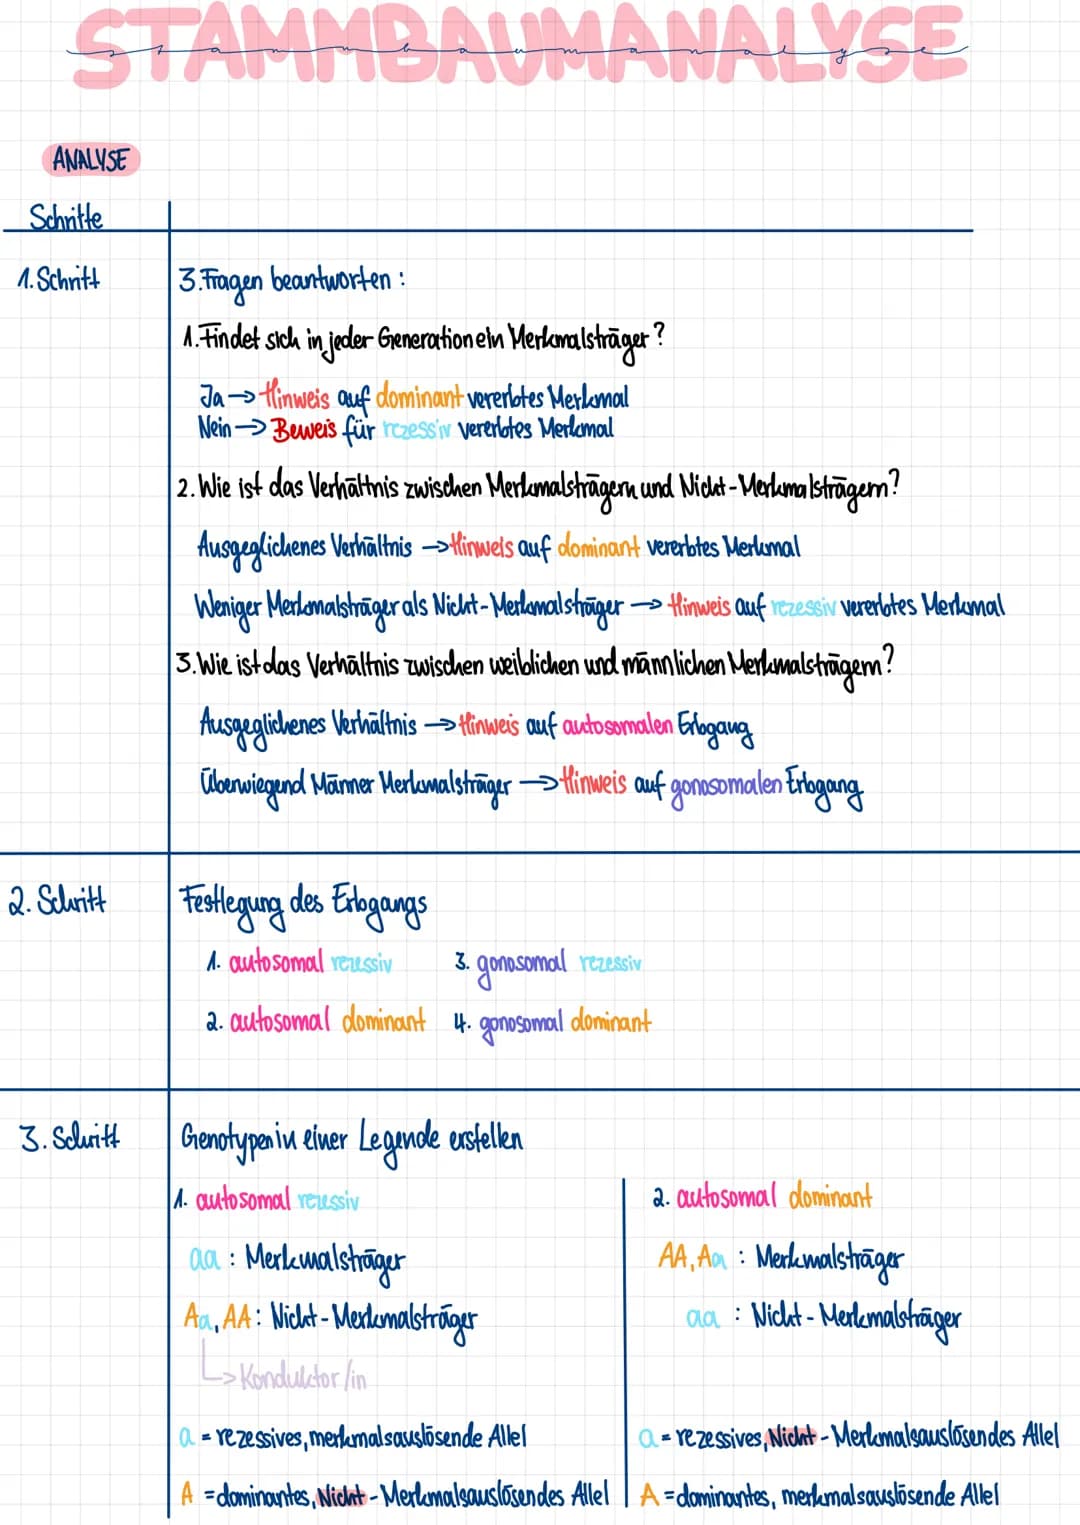 STAMMBAUMANALYSE
stammbaumanalyse
ANALYSE
Schritte
1. Schritt
3. Fragen beantworten :
1. Findet sich in jeder Generation ein Merkmalsträger ?
Ja → Hinweis auf dominant vererbtes Merkmal
Nein → Beweis für rezessiv vererbtes Merkmal
2. Wie ist das Verhältnis zwischen Merkmalsträgern und Nicht-Merkmalsträgern?
Ausgeglichenes Verhältnis → Hinweis auf dominant vererbtes Merkmal
Weniger Merkmalsträger als Nicht-Merkmalsträger → Hinweis auf rezessiv vererbtes Merkmal
3. Wie ist das Verhältnis zwischen weiblichen und männlichen Merkmalsträgern?
Ausgeglichenes Verhältnis → Hinweis auf autosomalen Erbgang
Überwiegend Männer Merkmalsträger → Hinweis auf gonosomalen Erbgang
2. Schritt
Festlegung des Erbgangs
1. autosomal rezessiv 3. gonosomal rezessiv
2. autosomal dominant 4. gonosomal dominant
3. Schritt
Genotypen in einer Legende erstellen
1. autosomal rezessiv
aa : Merkmalsträger
Aa, AA : Nicht-Merkmalsträger
↳ Konduktor/in
a = rezessives, merkmalsauslösende Allel
A = dominantes, Nicht-Merkmalsauslösendes Allel
2. autosomal dominant
AA, Aa : Merkmalsträger
aa : Nicht-Merkmalsträger
a = rezessives, Nicht-Merkmalsauslösendes Allel
A = dominantes, merkmalsauslösende Allel